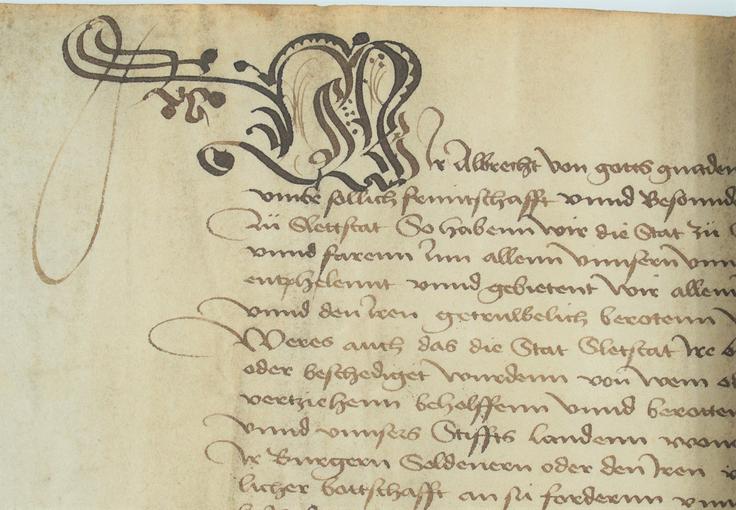 Wir Albrecht von gotts gnaden
vmbe sollich fruntschafft vnnd Besonnde
zu Slettstat So habenn wir die Stat zu
vnnd farenn Inn allenn vnnsern vnn
entphelennt vnnd gebietent wir allenn
vnnd den Iren getrulbelich berotenn
Weres auch das die Stat Sletstat Ire
oder beschediget wurdenn von wem od
vertziehenn beholffenn vnnd berotten
vnnd vnnsers Stiffts landenn wonn
Ir Burgern Soldenern oder den Iren
licher bottschafft an su fordernn vnn